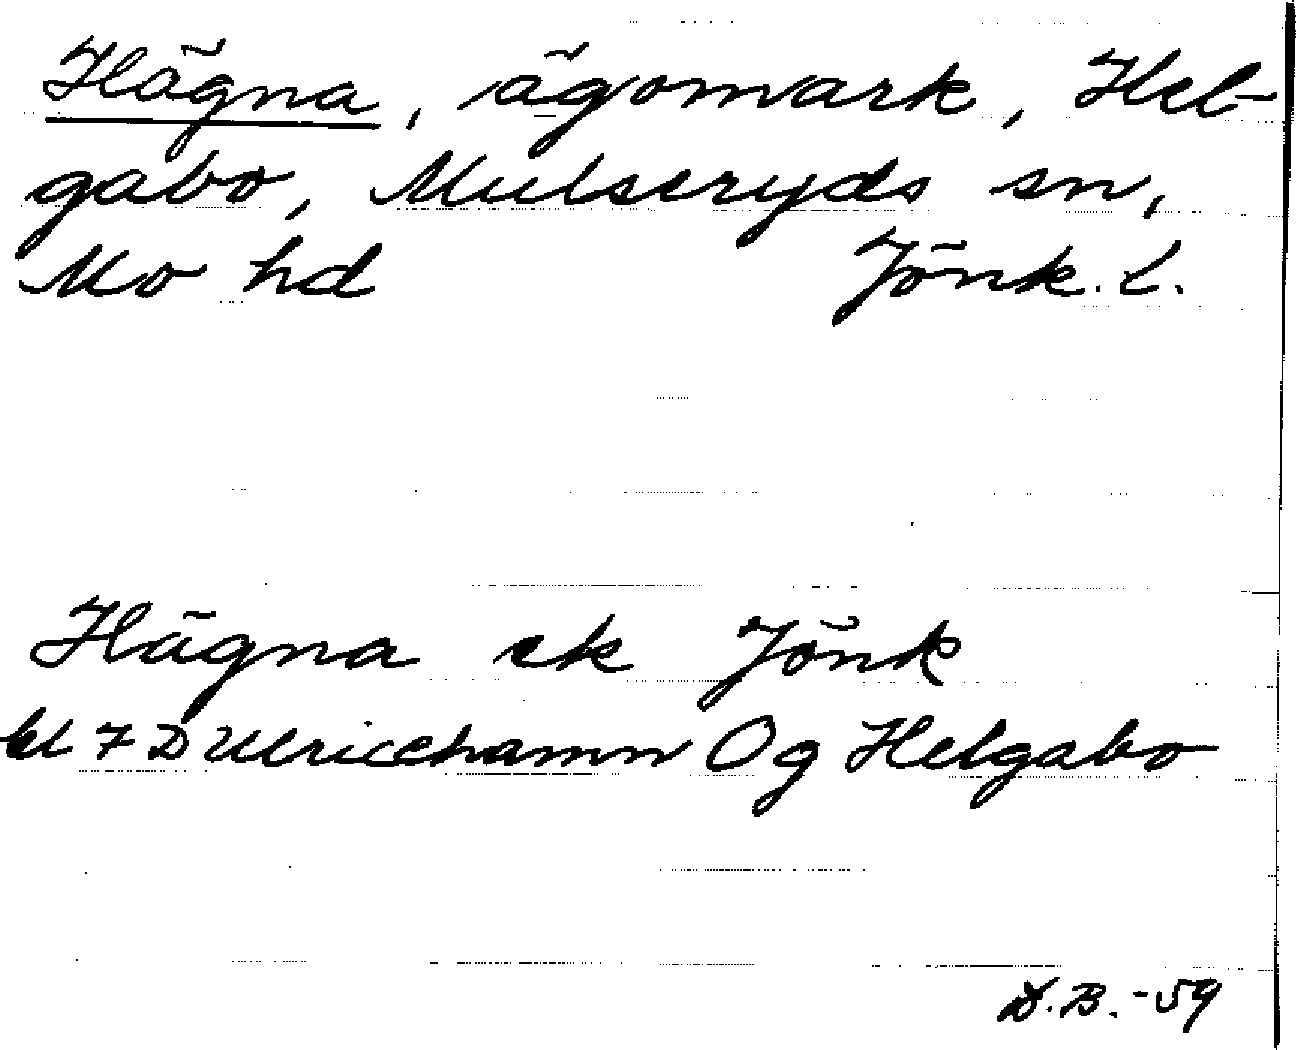 Hägna, ägomark, Hel-
gabo, Mulseryds sn,
Mo hd Jönk. L.
Hägna ek Jönk
bl 7 D Ulricehamn Og Helgabo
D.B. -59